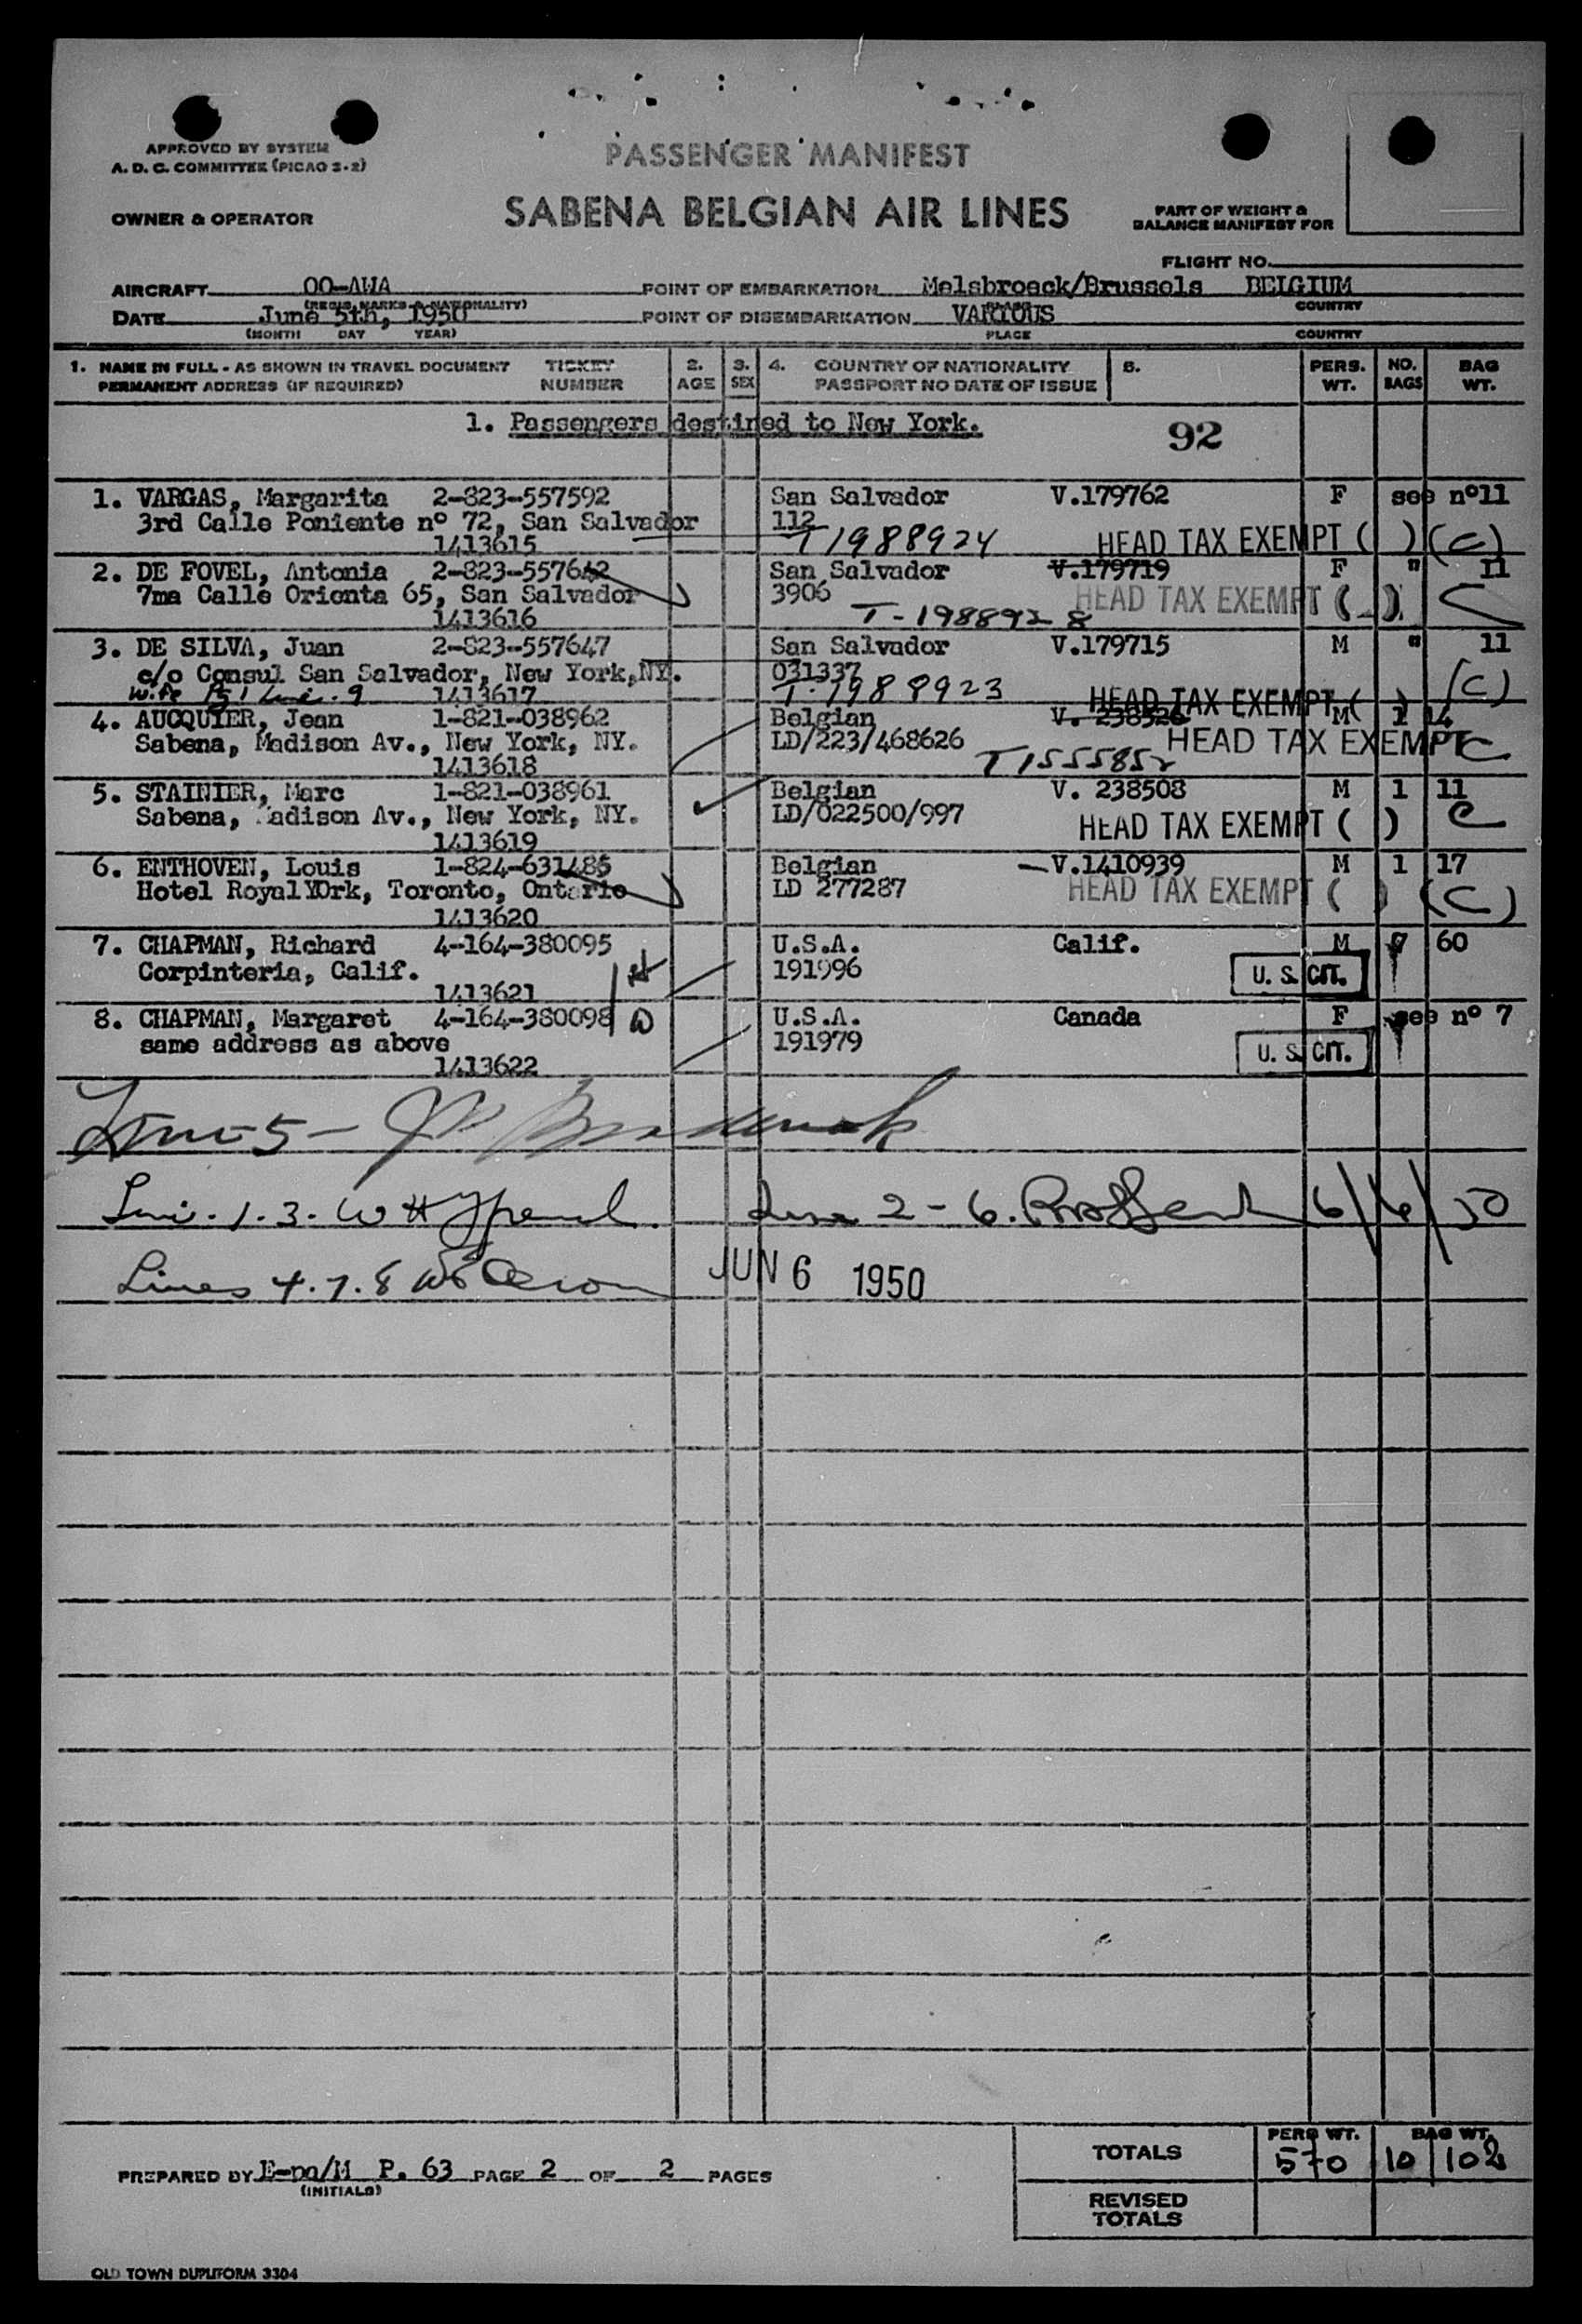 APPROVED BY SYSTEM
A. D. C. COMMITTEE (PICAO 2-2)
PASSENGER MANIFEST
OWNER & OPERATOR
SABENA BELGIAN AIR LINES
PART OF WEIGHT &
BALANCE MANIFEST FOR
FLIGHT NO.
AIRCRAFT OO-AWA POINT OF EMBARKATION Melsbroeck/Brussels BELGIUM
(REGIS. MARKS & NATIONALITY) PLACE COUNTRY
DATE June 5th, 1950 POINT OF DISEMBARKATION VARIOUS
(MONTH DAY YEAR) PLACE COUNTRY
1. NAME IN FULL - AS SHOWN IN TRAVEL DOCUMENT TICKET 2. 3. 4. COUNTRY OF NATIONALITY 5. PERS. NO. BAG
PERMANENT ADDRESS (IF REQUIRED) NUMBER AGE SEX PASSPORT NO DATE OF ISSUE WT. BAGS WT.
1. Passengers destined to New York. 92
1. VARGAS, Margarita 2-823-557592 San Salvador V.179762 F see nº11
3rd Calle Poniente nº 72, San Salvador 112
1413615 T1988924 HEAD TAX EXEMPT ( ) (C)
2. DE FOVEL, Antonia 2-823-557642 San Salvador V.179719 F " 11
7ma Calle Orionta 65, San Salvador 3906 HEAD TAX EXEMPT ( ) C
1413616 T-1988928
3. DE SILVA, Juan 2-823-557647 San Salvador V.179715 M " 11
c/o Consul San Salvador, New York, NY. 031337
wife 1413617 T.1988923 HEAD TAX EXEMPT ( ) (C)
4. AUCQUIER, Jean 1-821-038962 Belgian V. 238526 M 1 14
Sabena, Madison Av., New York, NY. LD/223/468626 HEAD TAX EXEMPT C
1413618 T1555852
5. STAINIER, Marc 1-821-038961 Belgian V. 238508 M 1 11
Sabena, Madison Av., New York, NY. LD/022500/997 HEAD TAX EXEMPT ( ) C
1413619
6. ENTHOVEN, Louis 1-824-631485 Belgian V.1410939 M 1 17
Hotel RoyalYOrk, Toronto, Ontario LD 277287 HEAD TAX EXEMPT ( ) (C)
1413620
7. CHAPMAN, Richard 4-164-380095 U.S.A. Calif. M 7 60
Corpinteria, Calif. H 191996 U. S. CIT.
1413621
8. CHAPMAN, Margaret 4-164-380098 W U.S.A. Canada F see nº 7
same address as above 191979 U. S. CIT.
1413622
Line 5 -
1. 3. 2 - 6. 6/6/50
Lines 4. 7. 8 JUN 6 1950
TOTALS PERS WT. BAG WT.
570 10 102
PREPARED BY E-pa/M P. 63 PAGE 2 OF 2 PAGES
(INITIALS)
REVISED
TOTALS
OLD TOWN DUPLIFORM 3304